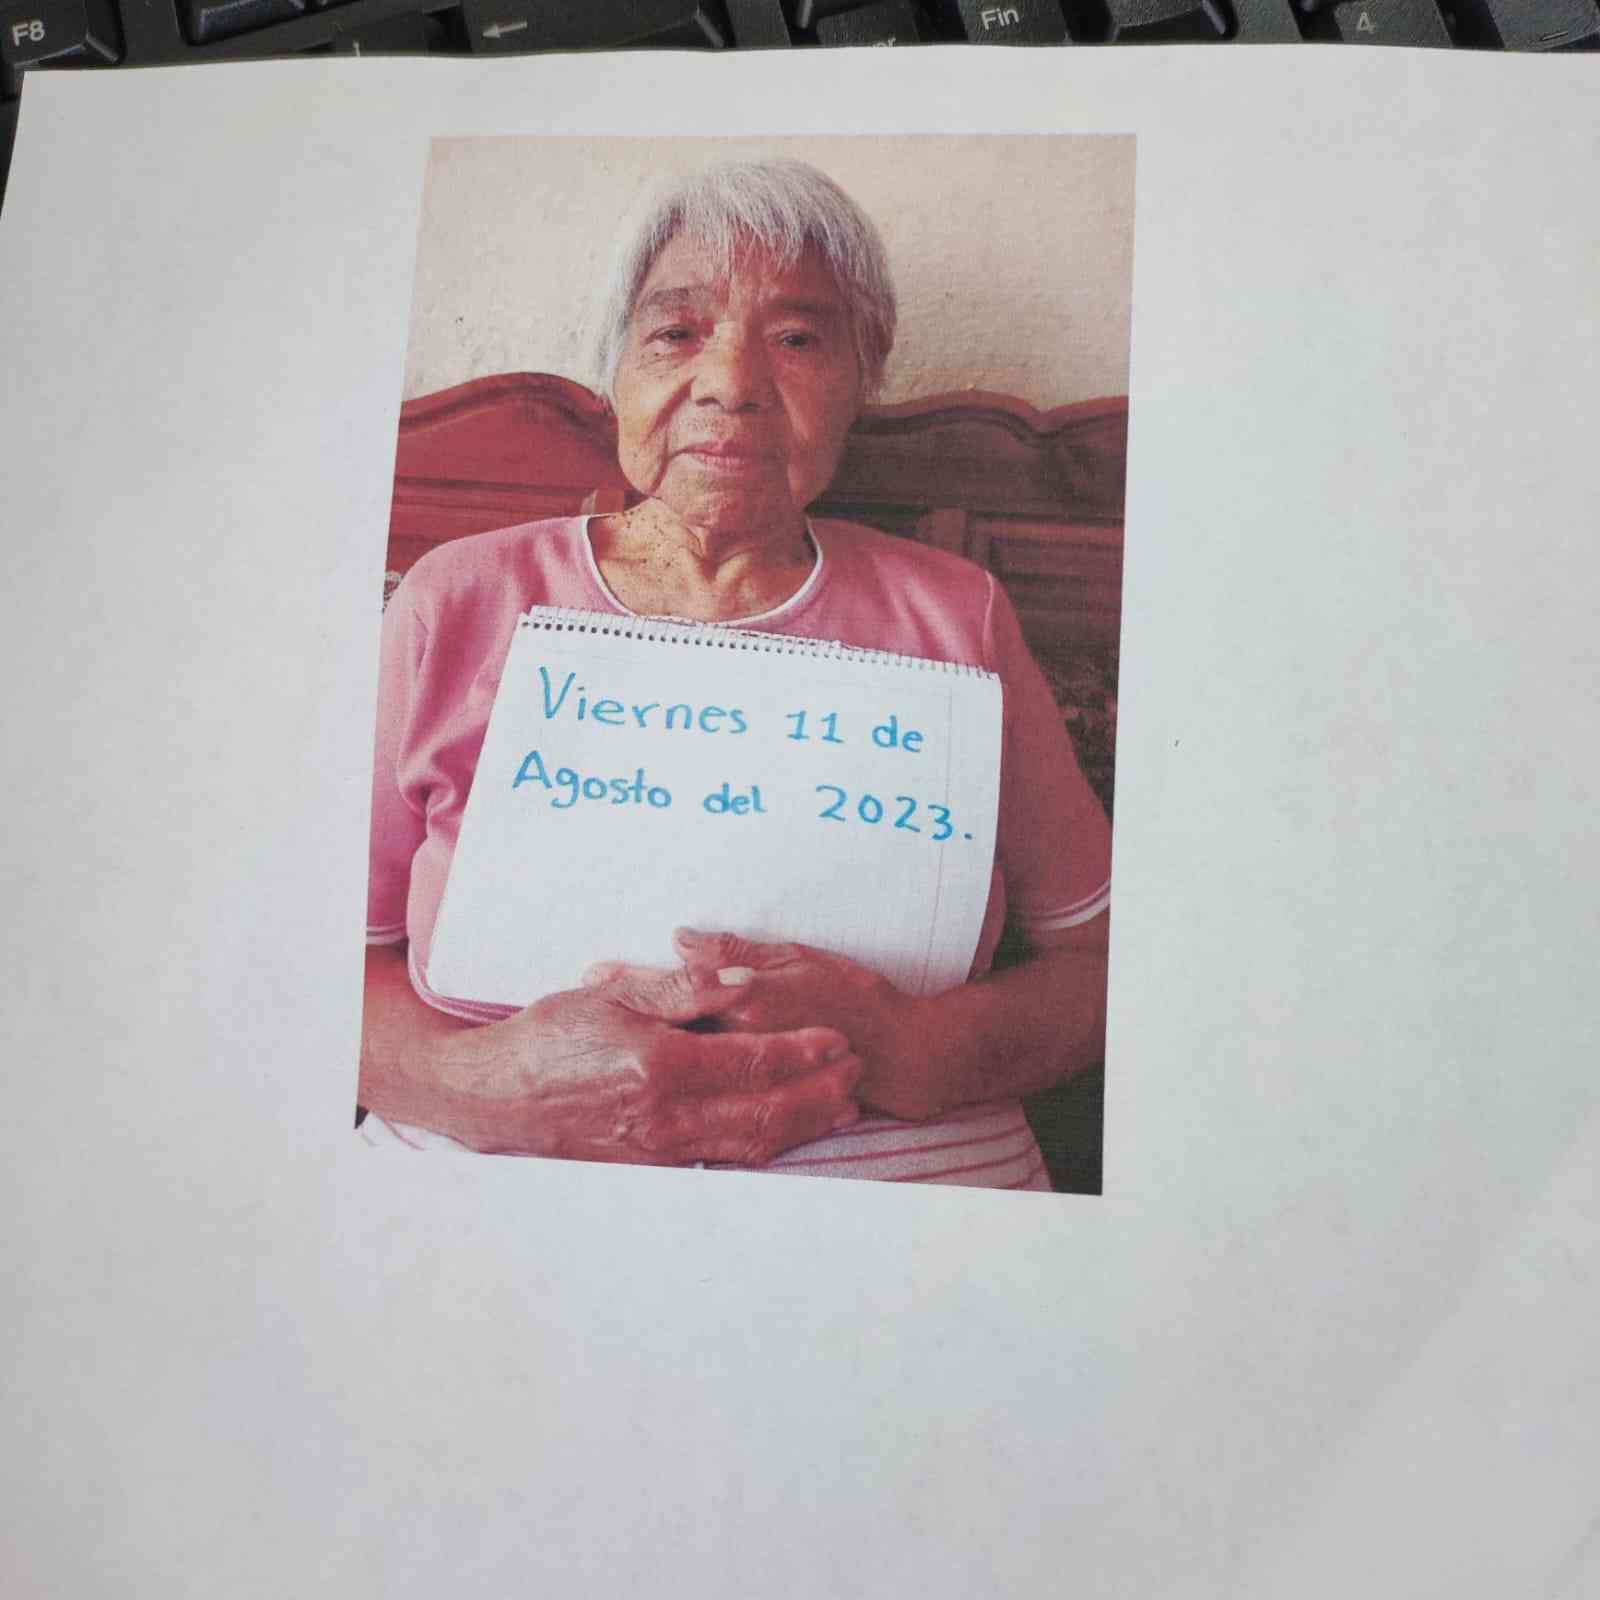 F8
Fin
4
Viernes 11 de
Agosto del 2023.